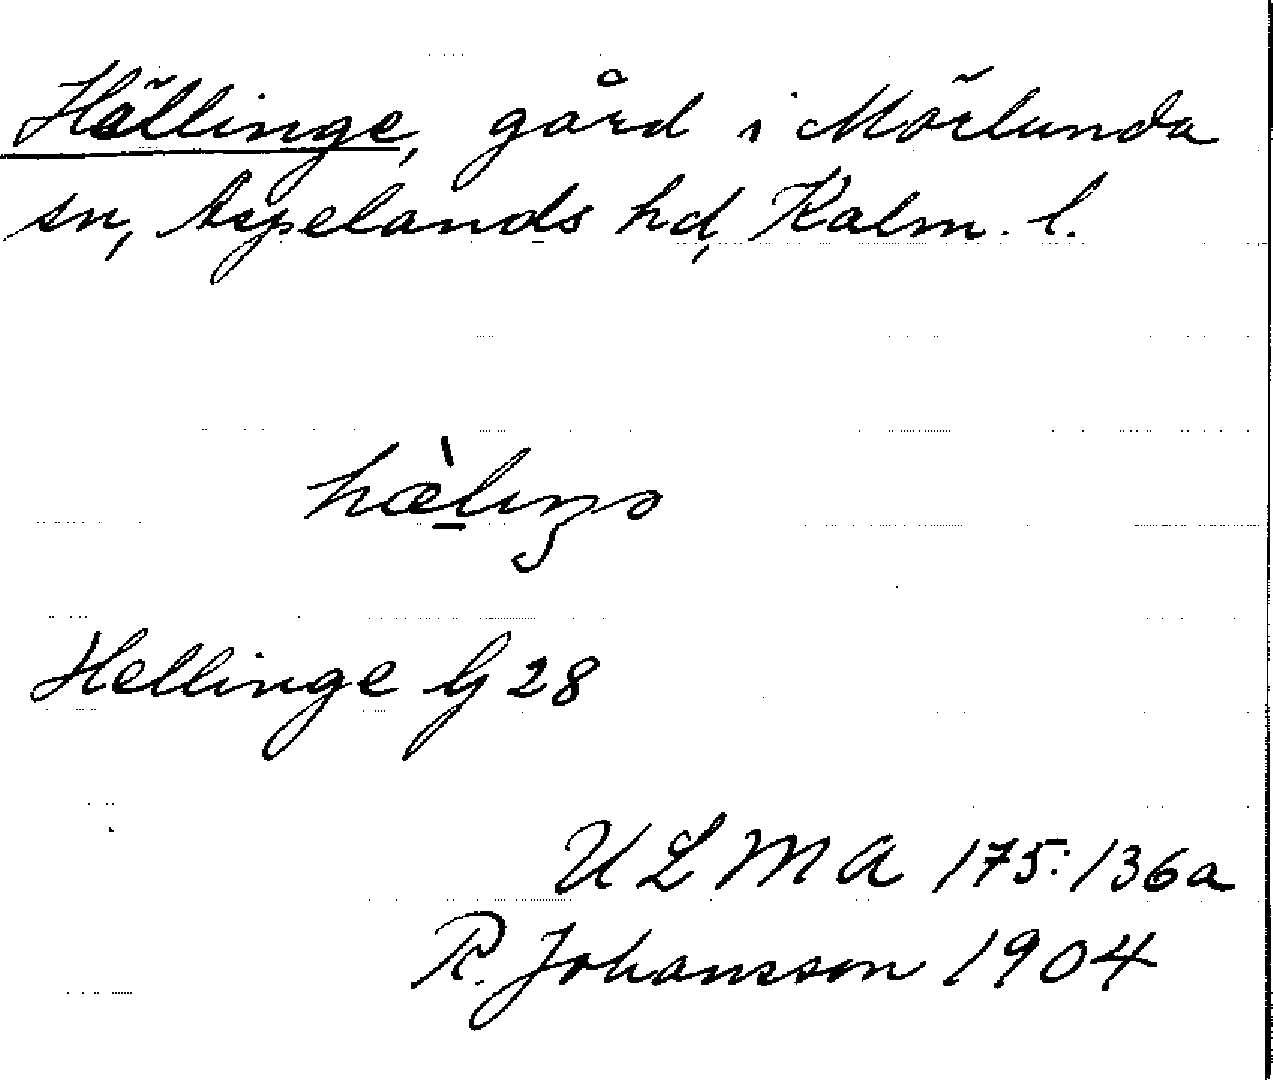 Hällinge, gård i Mörlunda
sn, Aspelands hd, Kalm. l.
hæ̀lıŋə
Hellinge G 28
ULMA 175:136a
R. Johansson 1904